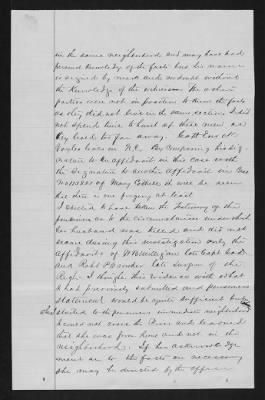 in the same neighborhood and may have had
personal knowledge of the facts but his name
is signed by mark and no doubt without
the knowledge of the witnesses. The other
parties were not in position to know the facts
as they did not live in the same section. I did
not spend time to hunt up these men as
they lived too far away. Capt
lives in N.C. By comparing his sig-
nature to the affidavit in this case with
the signature to another affidavit in Case
No of Mary it will be seen
his sig is one forgery at least
I started to have taken the testimony of the
pensioner as to the circumstances under which
her husband was killed and did not
secure during this investigation only the
affidavits of late Capt
and Robt late Surgeon of the
Regt. I thought this evidence with what
had previously submitted and pensioners
statement would be quite sufficient but
started to the pensioners immediate neighborhood
and learned
that she was from home and not in the
neighborhood. If her
as to the facts is necessary
she may be directed by the office